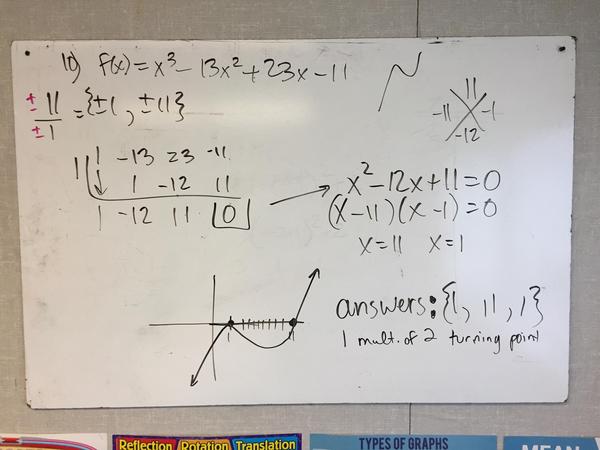 10) f(x) = x³ - 13x² + 23x - 11
± 11 / ±1 = {±1, ±11}
11
-11 -1
-12
1| 1 -13 23 -11
1 -12 11
1 -12 11 0
x² - 12x + 11 = 0
(x - 11)(x - 1) = 0
x = 11 x = 1
answers: {1, 11, 1}
1 mult. of 2 turning point
1
Reflection Rotation Translation
TYPES OF GRAPHS
MEAN